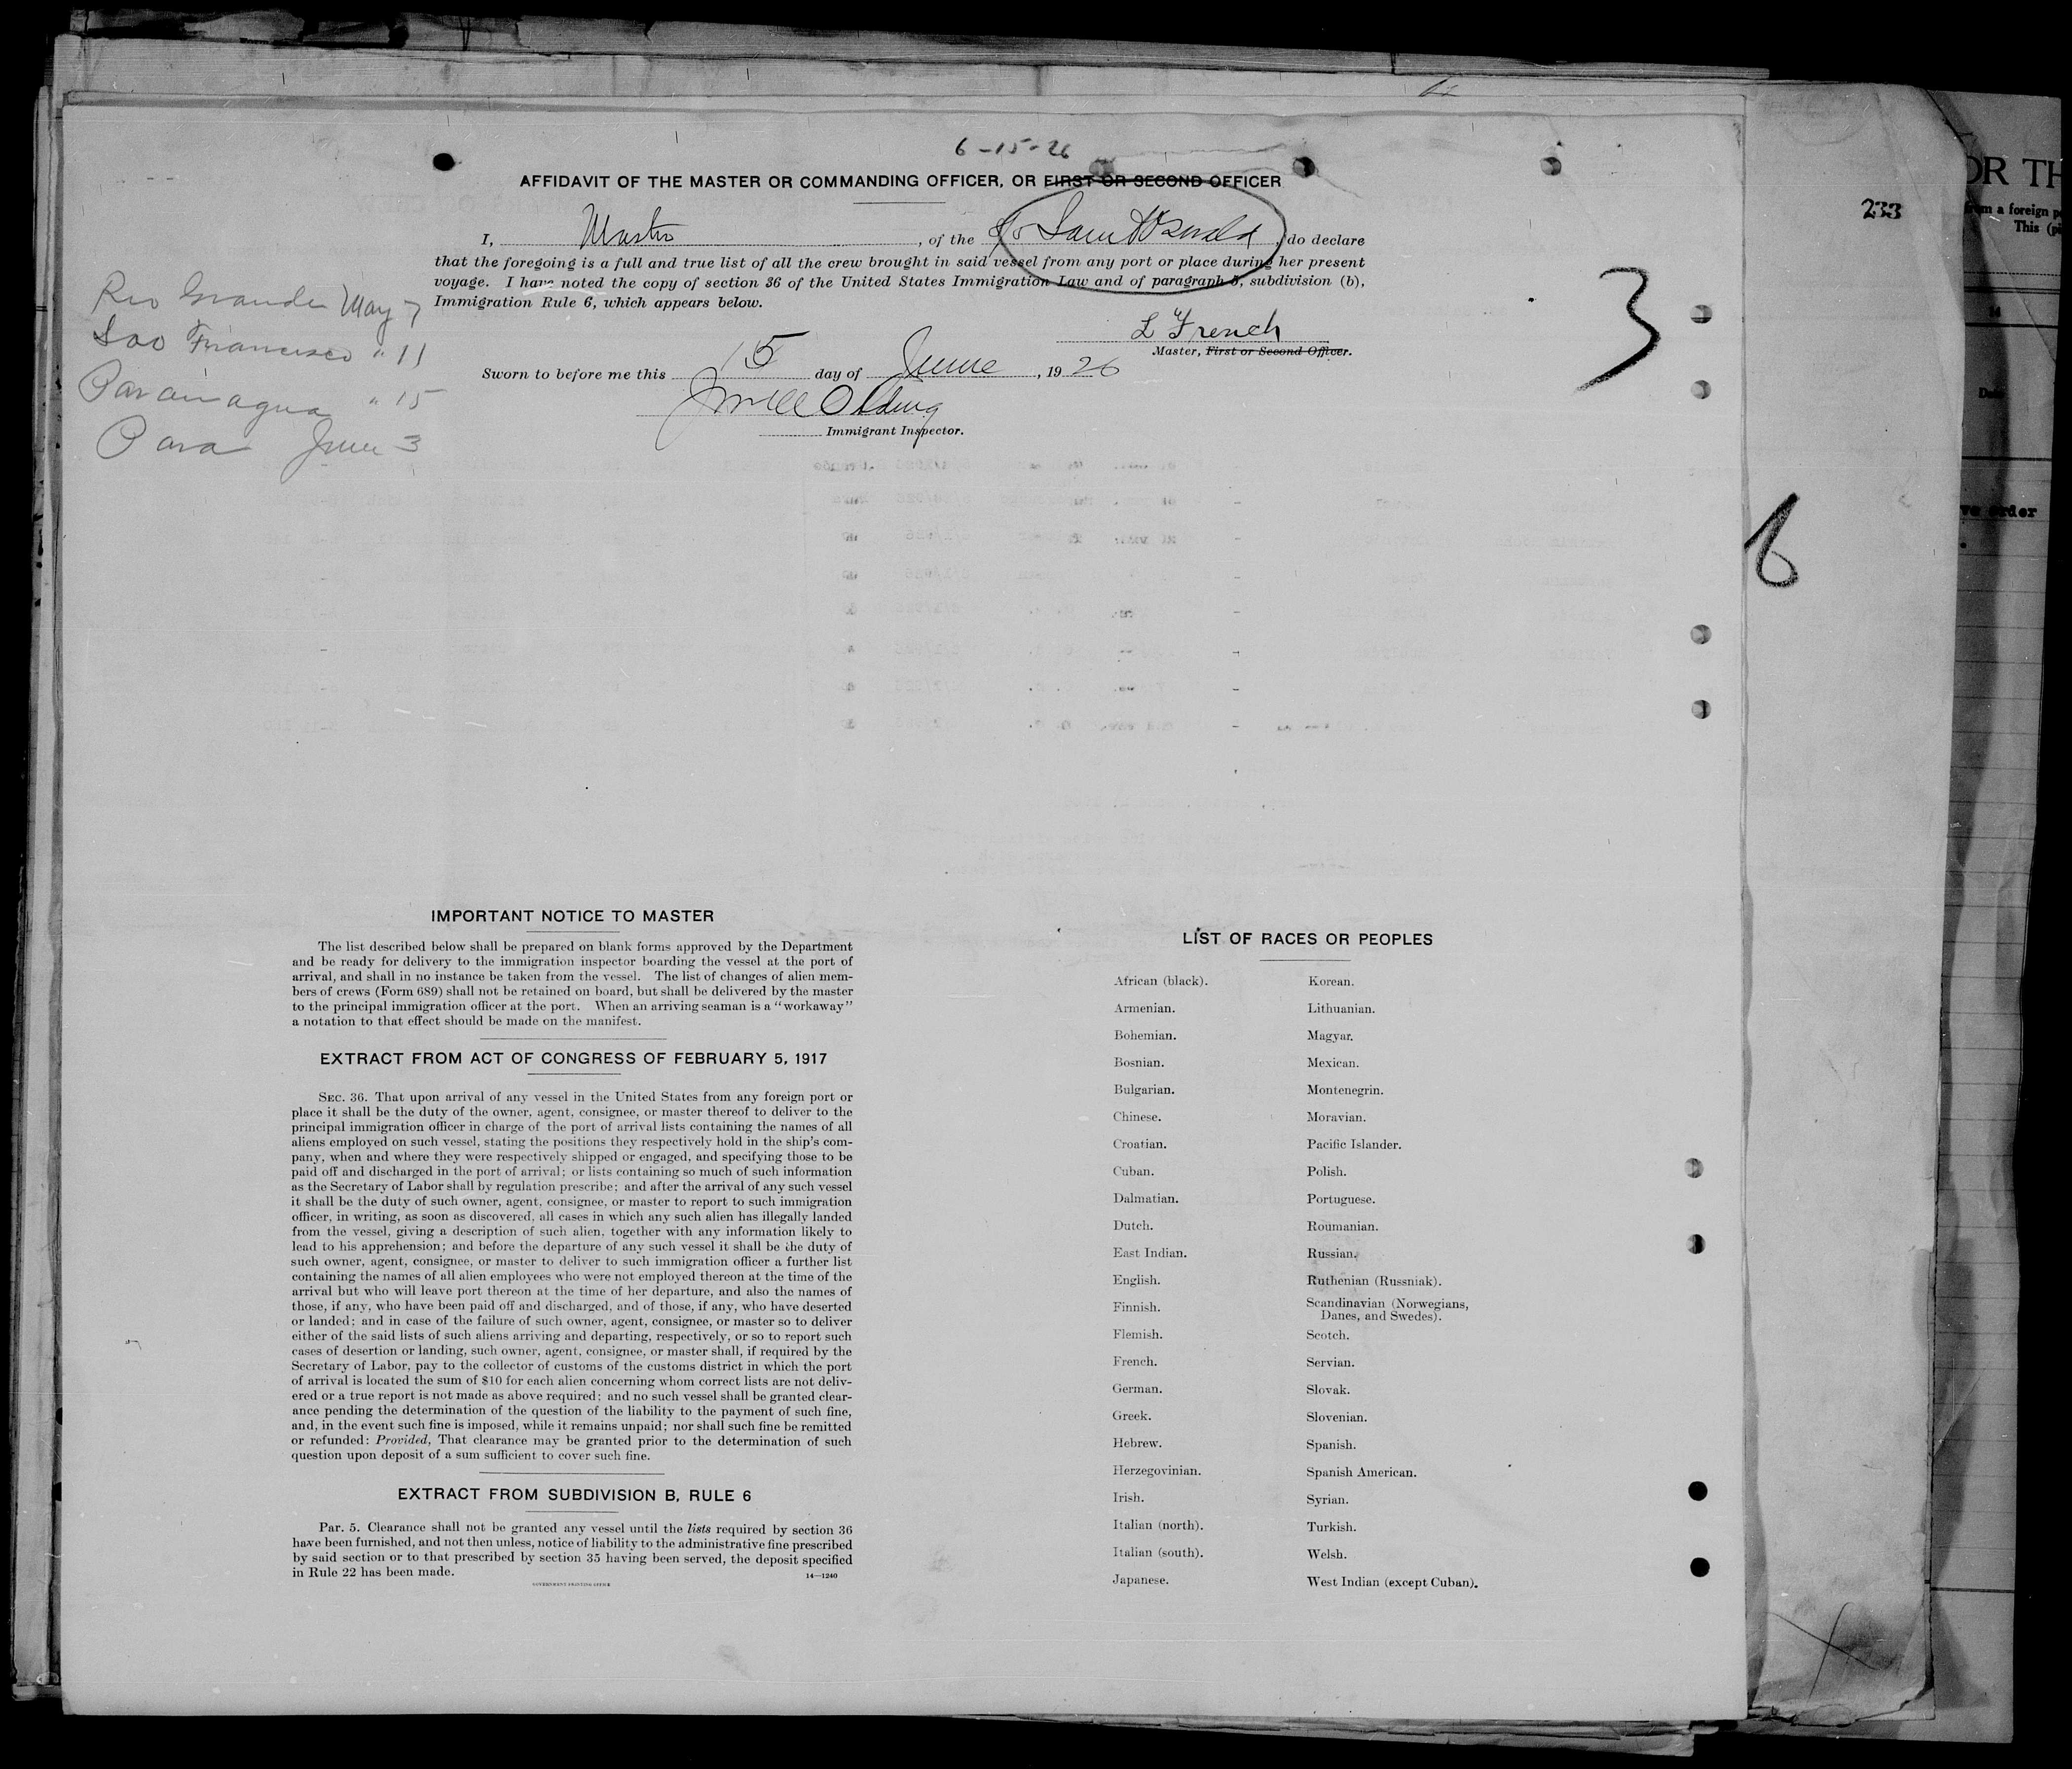 6-15-26
AFFIDAVIT OF THE MASTER OR COMMANDING OFFICER, OR FIRST OR SECOND OFFICER
I, Master, of the , do declare
that the foregoing is a full and true list of all the crew brought in said vessel from any port or place during her present
voyage. I have noted the copy of section 36 of the United States Immigration Law and of paragraph 5, subdivision (b),
Immigration Rule 6, which appears below.
L French
Master, First or Second Officer.
Sworn to before me this 15 day of June, 1926
Immigrant Inspector.
Rio Grande May 7
Sao Francisco " 11
Paranagua " 15
Para June 3
3
233
6
OR TH
from a foreign p
This (p
14
Dat
ve order
IMPORTANT NOTICE TO MASTER
The list described below shall be prepared on blank forms approved by the Department
and be ready for delivery to the immigration inspector boarding the vessel at the port of
arrival, and shall in no instance be taken from the vessel. The list of changes of alien mem-
bers of crews (Form 689) shall not be retained on board, but shall be delivered by the master
to the principal immigration officer at the port. When an arriving seaman is a "workaway"
a notation to that effect should be made on the manifest.
EXTRACT FROM ACT OF CONGRESS OF FEBRUARY 5, 1917
SEC. 36. That upon arrival of any vessel in the United States from any foreign port or
place it shall be the duty of the owner, agent, consignee, or master thereof to deliver to the
principal immigration officer in charge of the port of arrival lists containing the names of all
aliens employed on such vessel, stating the positions they respectively hold in the ship's com-
pany, when and where they were respectively shipped or engaged, and specifying those to be
paid off and discharged in the port of arrival; or lists containing so much of such information
as the Secretary of Labor shall by regulation prescribe; and after the arrival of any such vessel
it shall be the duty of such owner, agent, consignee, or master to report to such immigration
officer, in writing, as soon as discovered, all cases in which any such alien has illegally landed
from the vessel, giving a description of such alien, together with any information likely to
lead to his apprehension; and before the departure of any such vessel it shall be the duty of
such owner, agent, consignee, or master to deliver to such immigration officer a further list
containing the names of all alien employees who were not employed thereon at the time of the
arrival but who will leave port thereon at the time of her departure, and also the names of
those, if any, who have been paid off and discharged, and of those, if any, who have deserted
or landed; and in case of the failure of such owner, agent, consignee, or master so to deliver
either of the said lists of such aliens arriving and departing, respectively, or so to report such
cases of desertion or landing, such owner, agent, consignee, or master shall, if required by the
Secretary of Labor, pay to the collector of customs of the customs district in which the port
of arrival is located the sum of $10 for each alien concerning whom correct lists are not deliv-
ered or a true report is not made as above required; and no such vessel shall be granted clear-
ance pending the determination of the question of the liability to the payment of such fine,
and, in the event such fine is imposed, while it remains unpaid; nor shall such fine be remitted
or refunded: Provided, That clearance may be granted prior to the determination of such
question upon deposit of a sum sufficient to cover such fine.
EXTRACT FROM SUBDIVISION B, RULE 6
Par. 5. Clearance shall not be granted any vessel until the lists required by section 36
have been furnished, and not then unless, notice of liability to the administrative fine prescribed
by said section or to that prescribed by section 35 having been served, the deposit specified
in Rule 22 has been made.
14—1240
GOVERNMENT PRINTING OFFICE
LIST OF RACES OR PEOPLES
African (black).
Armenian.
Bohemian.
Bosnian.
Bulgarian.
Chinese.
Croatian.
Cuban.
Dalmatian.
Dutch.
East Indian.
English.
Finnish.
Flemish.
French.
German.
Greek.
Hebrew.
Herzegovinian.
Irish.
Italian (north).
Italian (south).
Japanese.
Korean.
Lithuanian.
Magyar.
Mexican.
Montenegrin.
Moravian.
Pacific Islander.
Polish.
Portuguese.
Roumanian.
Russian.
Ruthenian (Russniak).
Scandinavian (Norwegians,
Danes, and Swedes).
Scotch.
Servian.
Slovak.
Slovenian.
Spanish.
Spanish American.
Syrian.
Turkish.
Welsh.
West Indian (except Cuban).